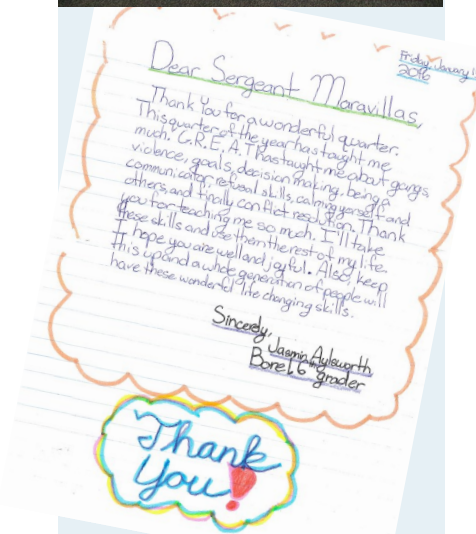 Friday, January 1
2016
Dear Sergeant Maravillas,
Thank you for a wonderful quarter.
This quarter of the year has taught me
much. G.R.E.A.T has taught me about gangs,
violence, goals, decision making, being a
communicator, refusal skills, calming yourself and
others, and finally conflict resolution. Thank
you for teaching me so much. I'll take
these skills and use them the rest of my life.
I hope you are well and joyful. Also, keep
this up and a whole generation of people will
have these wonderful life changing skills.
Sincerely,
Jasmin Aylsworth
Borel, 6th grader
Thank
you!